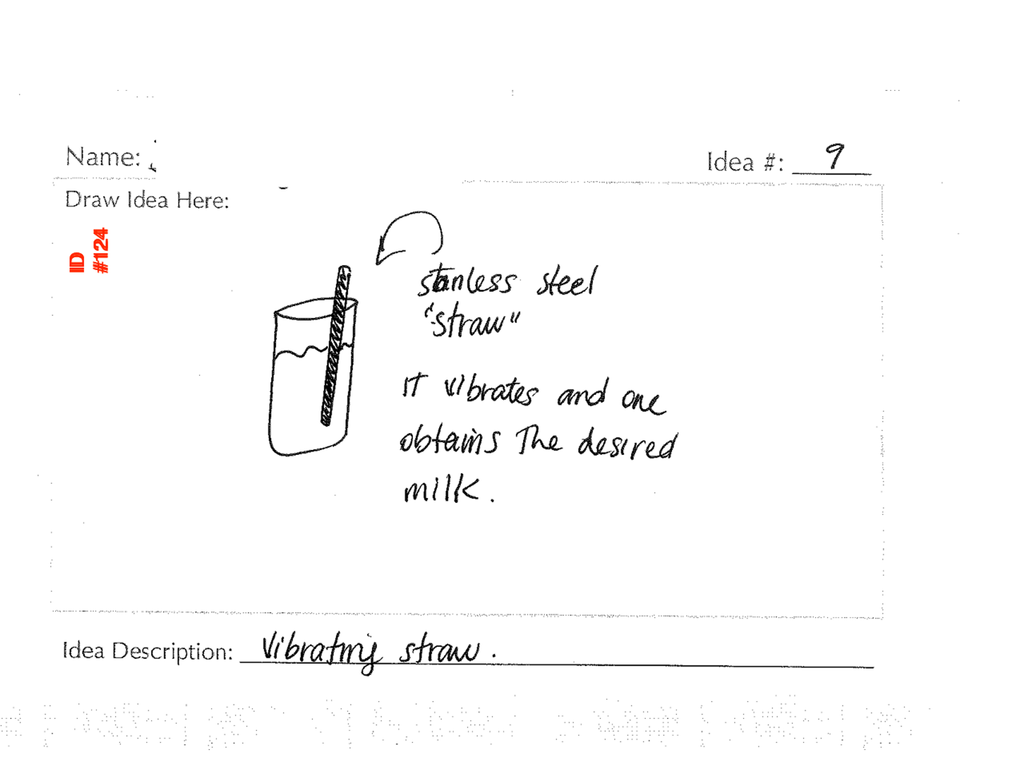 Name:
Idea #: 9
Draw Idea Here:
ID
#124
stainless steel
"straw"
It vibrates and one
obtains The desired
milk.
Idea Description: Vibrating straw.